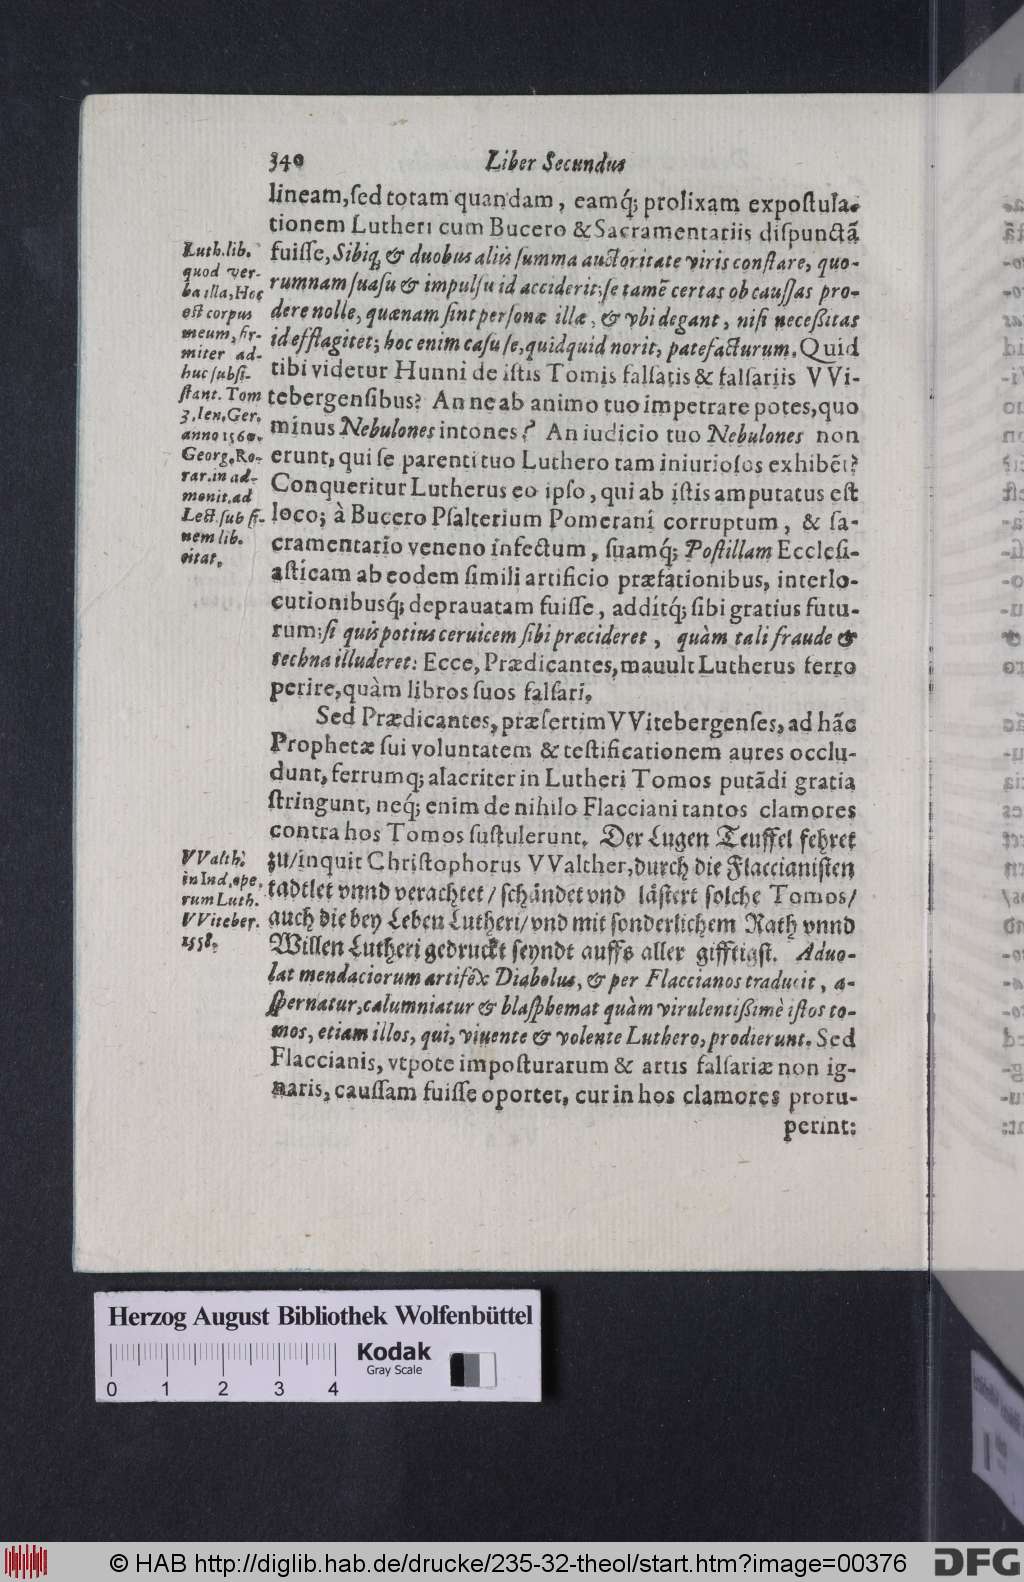 340
Liber Secundus
lineam, ſed totam quandam, eamq́; prolixam expoſtula-
tionem Lutheri cum Bucero & Sacramentariis diſpunctã
fuiſſe, Sibiq́; & duobus aliis ſumma auctoritate viris conſtare, quo-
rumnam ſuaſu & impulſu id acciderit; ſe tamẽ certas ob cauſſas pro-
dere nolle, quænam ſint perſonæ illæ, & vbi degant, niſi neceßitas
id efflagitet; hoc enim caſu ſe, quidquid norit, patefacturum. Quid
tibi videtur Hunni de iſtis Tomis falſatis & falſariis VVi-
tebergenſibus? An ne ab animo tuo impetrare potes, quo
minus Nebulones intones? An iudicio tuo Nebulones non
erunt, qui ſe parenti tuo Luthero tam iniurioſos exhibẽt?
Conqueritur Lutherus eo ipſo, qui ab iſtis amputatus eſt
loco; à Bucero Pſalterium Pomerani corruptum, & ſa-
cramentario veneno infectum, ſuamq́; Poſtillam Eccleſi-
aſticam ab eodem ſimili artificio præfationibus, interlo-
cutionibusq́; deprauatam fuiſſe, additq́; ſibi gratius futu-
rum; ſi quis potius ceruicem ſibi præcideret, quàm tali fraude &
techna illuderet: Ecce, Prædicantes, mauult Lutherus ferro
perire, quàm libros ſuos falſari.
Sed Prædicantes, præſertim VVitebergenſes, ad hãc
Prophetæ ſui voluntatem & teſtificationem aures occlu-
dunt, ferrumq́; alacriter in Lutheri Tomos putãdi gratia
ſtringunt, neq́; enim de nihilo Flacciani tantos clamores
contra hos Tomos ſuſtulerunt. Der Lugen Teuffel fehret
zu/ inquit Chriſtophorus VValther, durch die Flaccianiſten
tadtlet vnnd verachtet/ ſchändet vnd läſtert ſolche Tomos/
auch die bey Leben Lutheri/ vnd mit ſonderlichem Rath vnnd
Willen Lutheri gedruckt ſeyndt auffs aller gifftigſt. Aduo-
lat mendaciorum artifẽx Diabolus, & per Flaccianos traducit, a-
ſpernatur, calumniatur & blaſphemat quàm virulentißimè iſtos to-
mos, etiam illos, qui, viuente & volente Luthero, prodierunt. Sed
Flaccianis, vtpote impoſturarum & artis falſariæ non ig-
naris, cauſſam fuiſſe oportet, cur in hos clamores proru-
perint:
Luth. lib.
quod ver-
ba illa, Hoc
eſt corpus
meum, fir-
miter ad-
huc ſubſi-
ſtant. Tom
3. Ien. Ger.
anno 1560.
Georg. Ro-
rar. in ad-
monit. ad
Lect. ſub fi-
nem lib.
citat.
VValth.
in Ind. ope.
rum Luth.
VViteber.
1558.
Herzog August Bibliothek Wolfenbüttel
Kodak
Gray Scale
0 1 2 3 4
© HAB http://diglib.hab.de/drucke/235-32-theol/start.htm?image=00376
DFG